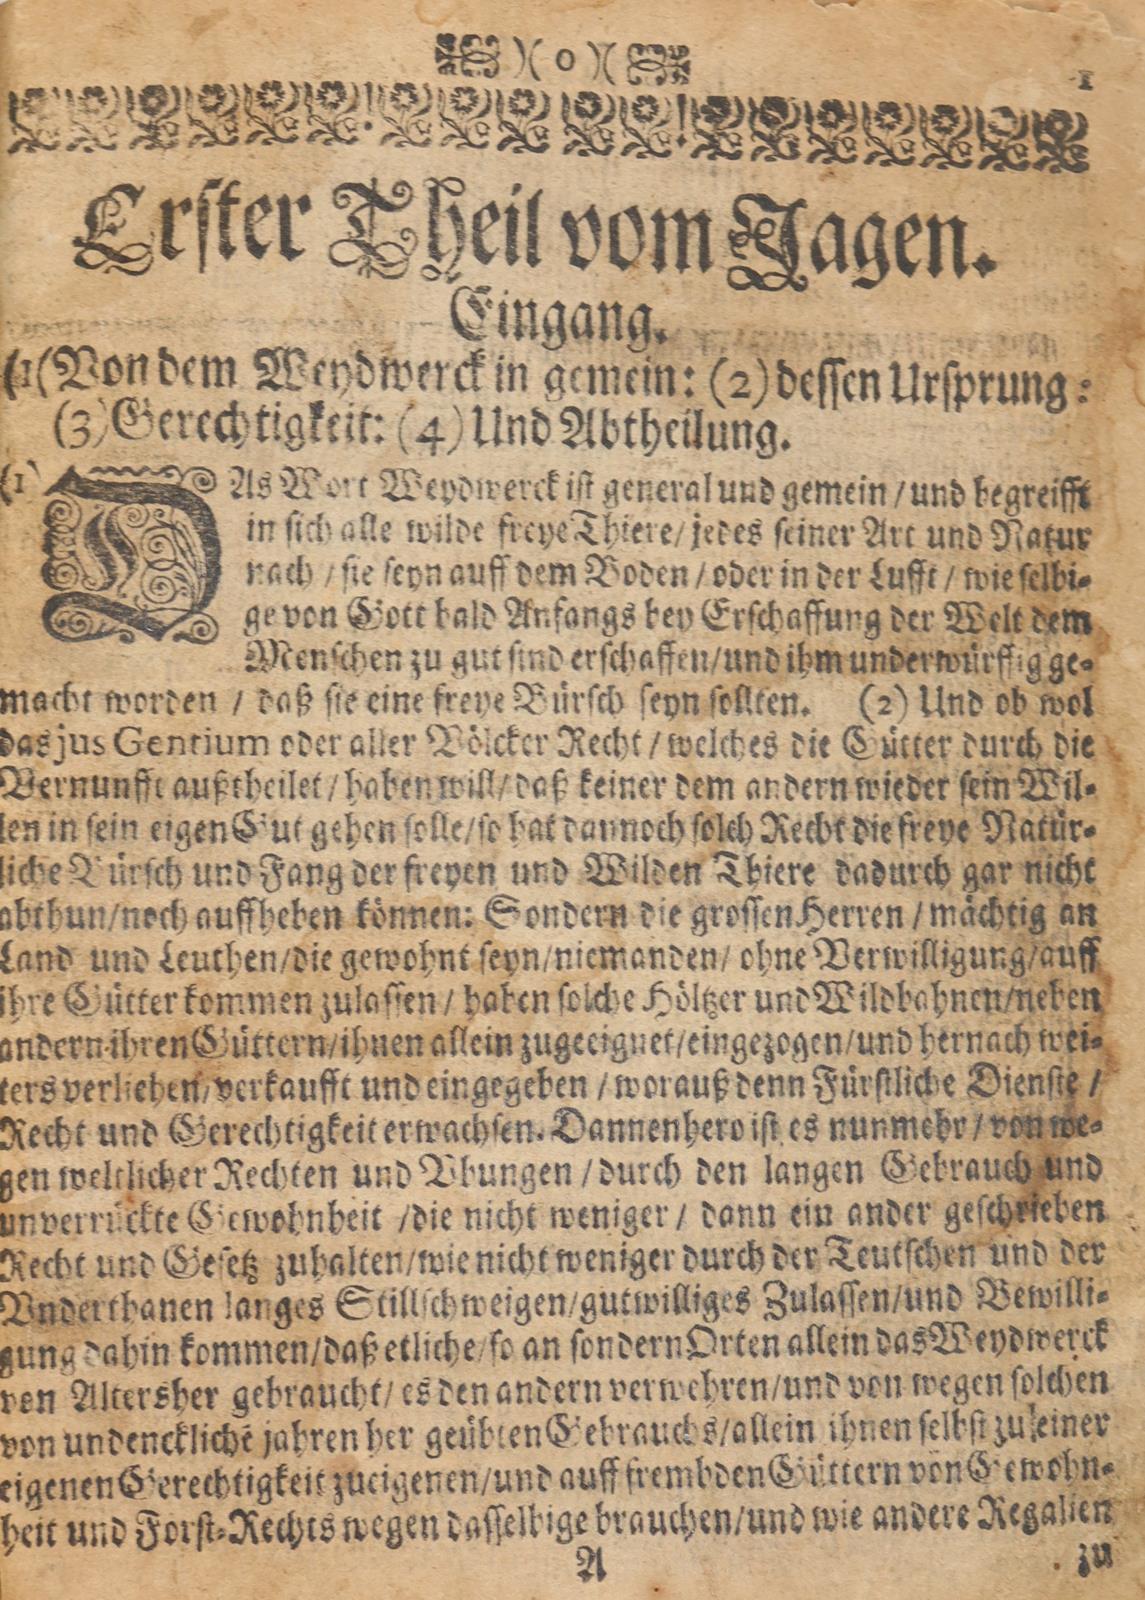 )( 0 )(
1
Erster Theil vom Jagen.
Eingang.
(1( Von dem Weydwerck in gemein: (2) dessen Ursprung:
(3) Gerechtigkeit: (4) Und Abtheilung.
(1) DAs Wort Weydwerck ist general und gemein / und begreifft
in sich alle wilde freye Thiere / jedes seiner Art und Natur
nach / sie seyn auff dem Boden / oder in der Lufft / wie selbi-
ge von Gott bald Anfangs bey Erschaffung der Welt dem
Menschen zu gut sind erschaffen / und ihm underwürffig ge-
macht worden / daß sie eine freye Bürsch seyn sollten. (2) Und ob wol
das jus Gentium oder aller Völcker Recht / welches die Gütter durch die
Vernunfft außtheilet / haben will / daß keiner dem andern wieder sein Wil-
len in sein eigen Gut gehen solle / so hat dannoch solch Recht die freye Natür-
liche Bürsch und Fang der freyen und Wilden Thiere dadurch gar nicht
abthun / noch auffheben können: Sondern die grossen Herren / mächtig an
Land und Leuthen / die gewohnt seyn / niemanden / ohne Verwilligung / auff
ihre Gütter kommen zulassen / haben solche Höltzer und Wildbahnen / neben
andern ihren Güttern / ihnen allein zugeeignet / eingezogen / und hernach wei-
ters verliehen / verkaufft und eingegeben / worauß denn Fürstliche Dienste /
Recht und Gerechtigkeit erwachsen. Dannenhero ist es nunmehr / von we-
gen weltlicher Rechten und Vbungen / durch den langen Gebrauch und
unverruckte Gewohnheit / die nicht weniger / dann ein ander geschrieben
Recht und Gesetz zuhalten / wie nicht weniger durch der Teutschen und der
Vnderthanen langes Stillschweigen / gutwilliges Zulassen / und Bewilli-
gung dahin kommen / daß etliche / so an sondern Orten allein das Weydwerck
von Altersher gebraucht / es den andern verwehren / und von wegen solchen
von undenckliché jahren her geübten Gebrauchs / allein ihnen selbst zu seiner
eigenen Gerechtigkeit zueigenen / und auff frembden Güttern von Gewohn-
heit und Forst-Rechts wegen dasselbige brauchen / und wie andere Regalien
A
zu